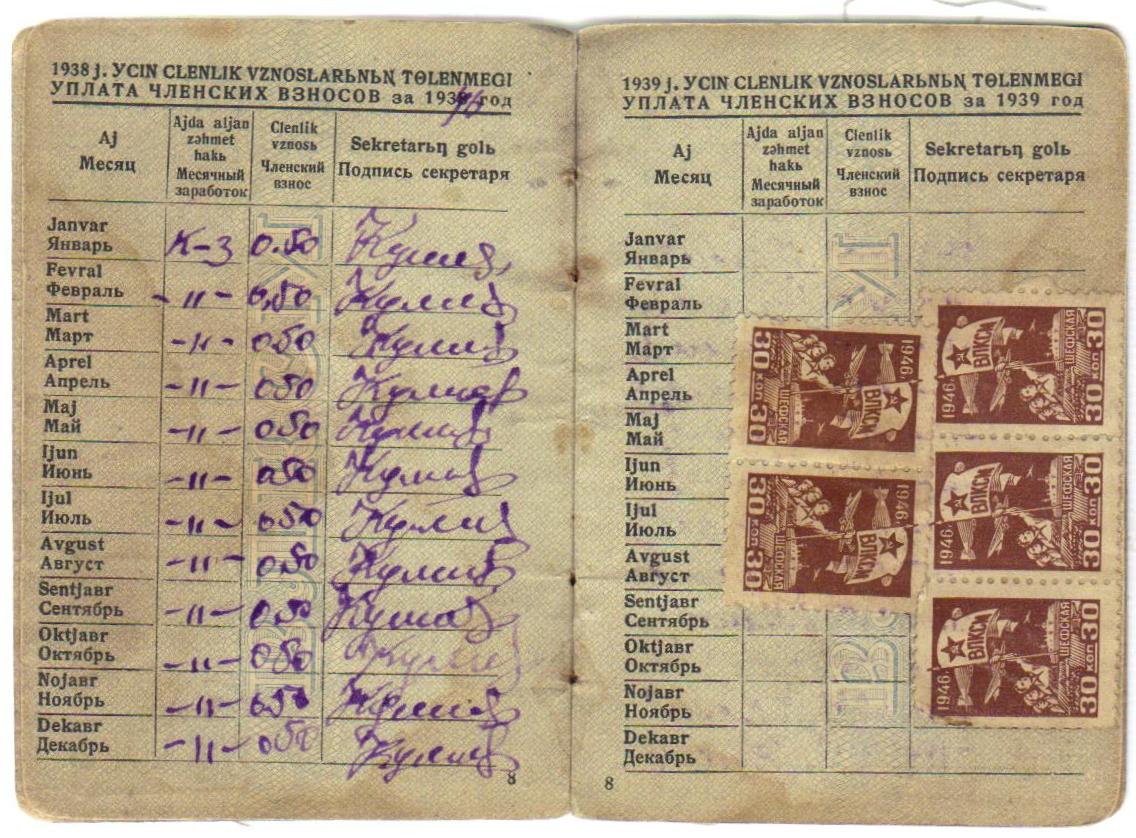 1938 j. УCIN CLENLIK VZNOSLARЬNЬꞐ TɵLENMEGI
УПЛАТА ЧЛЕНСКИХ ВЗНОСОВ за 1946 год
Aj
Месяц
Ajda aljan
zəhmet
hakь
Месячный
заработок
Clenlik
vznosь
Членский
взнос
Sekretarьꞑ golь
Подпись секретаря
Janvar
Январь К-3 0.50
Fevral
Февраль -11- 0,50
Mart
Март -11- 050
Aprel
Апрель -11- 050
Maj
Май -11- 050
Ijun
Июнь -11- 050
Ijul
Июль -11- 050
Avgust
Август -11- 050
Sentjabr
Сентябрь -11- 050
Oktjabr
Октябрь -11- 050
Nojabr
Ноябрь -11- 050
Dekabr
Декабрь -11- 050
8
1939 j. УCIN CLENLIK VZNOSLARЬNЬꞐ TɵLENMEGI
УПЛАТА ЧЛЕНСКИХ ВЗНОСОВ за 1939 год
Aj
Месяц
Ajda aljan
zəhmet
hakь
Месячный
заработок
Clenlik
vznosь
Членский
взнос
Sekretarьꞑ golь
Подпись секретаря
Janvar
Январь
Fevral
Февраль
Mart
Март
Aprel
Апрель
Maj
Май
Ijun
Июнь
Ijul
Июль
Avgust
Август
Sentjabr
Сентябрь
Oktjabr
Октябрь
Nojabr
Ноябрь
Dekabr
Декабрь
8
1946. ВЛКСМ ШЕФСКАЯ 30 коп 30
1946. ВЛКСМ ШЕФСКАЯ 30 коп 30
1946. ВЛКСМ ШЕФСКАЯ 30 коп 30
1946. ВЛКСМ ШЕФСКАЯ 30 коп 30
1946. ВЛКСМ ШЕФСКАЯ 30 коп 30